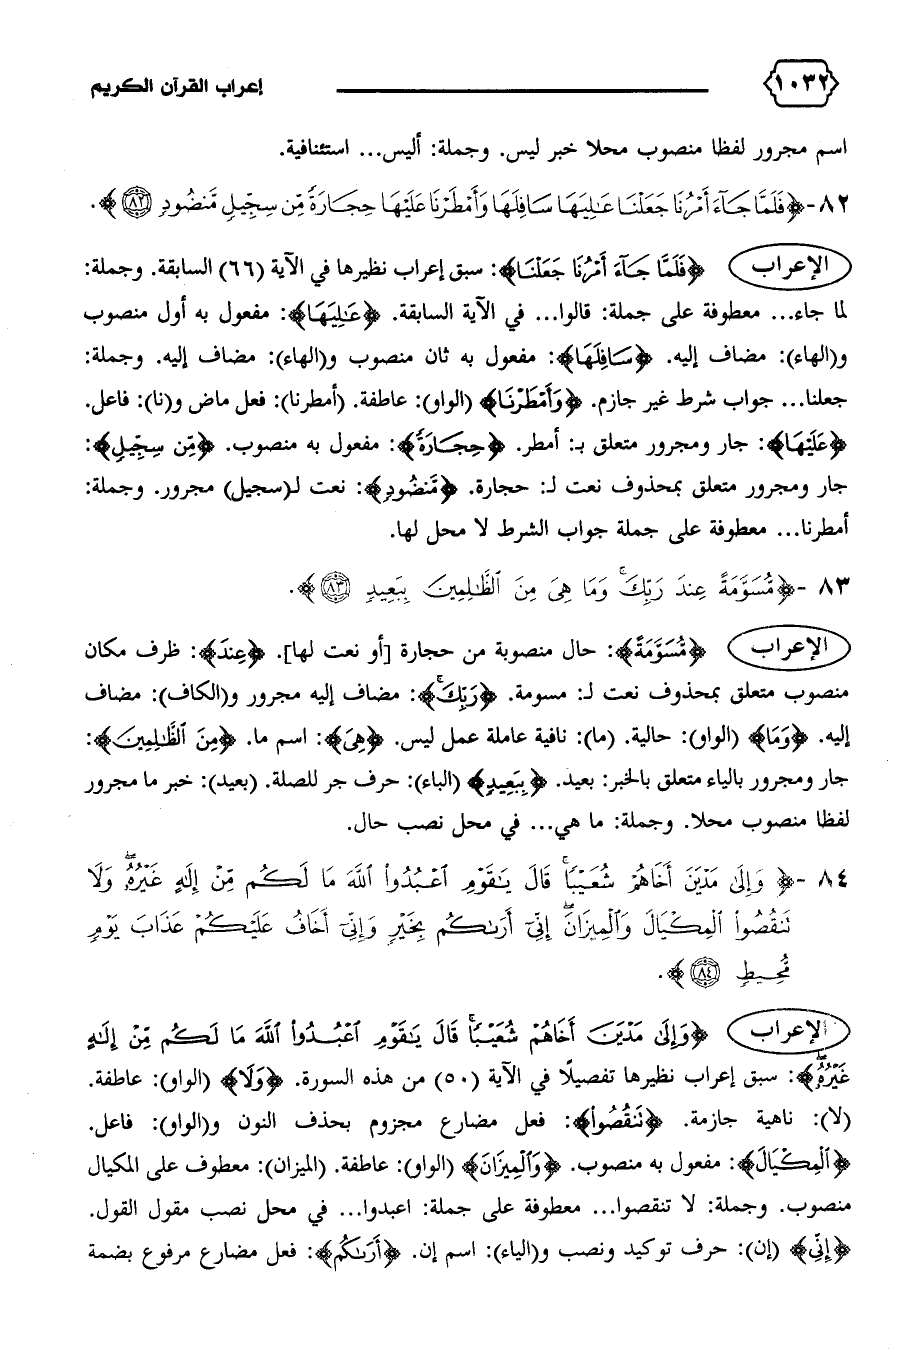 ١٠٣٢ إعراب القرآن الكريم
اسم مجرور لفظا منصوب محلا خبر ليس. وجملة: أليس... استئنافية.
٨٢ - ﴿فَلَمَّا جَآءَ أَمْرُنَا جَعَلْنَا عَٰلِيَهَا سَافِلَهَا وَأَمْطَرْنَا عَلَيْهَا حِجَارَةً مِّن سِجِّيلٍ مَّنضُودٍ ٨٢﴾.
الإعراب ﴿فَلَمَّا جَآءَ أَمْرُنَا جَعَلْنَا﴾: سبق إعراب نظيرها في الآية (٦٦) السابقة. وجملة:
لما جاء... معطوفة على جملة: قالوا... في الآية السابقة. ﴿عَٰلِيَهَا﴾: مفعول به أول منصوب
و(الهاء): مضاف إليه. ﴿سَافِلَهَا﴾: مفعول به ثان منصوب و(الهاء): مضاف إليه. وجملة:
جعلنا... جواب شرط غير جازم. ﴿وَأَمْطَرْنَا﴾ (الواو): عاطفة. (أمطرنا): فعل ماض و(نا): فاعل.
﴿عَلَيْهَا﴾: جار ومجرور متعلق بـ: أمطر. ﴿حِجَارَةً﴾: مفعول به منصوب. ﴿مِّن سِجِّيلٍ﴾:
جار ومجرور متعلق بمحذوف نعت لـ: حجارة. ﴿مَّنضُودٍ﴾: نعت لـ(سجيل) مجرور. وجملة:
أمطرنا... معطوفة على جملة جواب الشرط لا محل لها.
٨٣ - ﴿مُّسَوَّمَةً عِندَ رَبِّكَ ۖ وَمَا هِىَ مِنَ ٱلظَّٰلِمِينَ بِبَعِيدٍ ٨٣﴾.
الإعراب ﴿مُّسَوَّمَةً﴾: حال منصوبة من حجارة [أو نعت لها]. ﴿عِندَ﴾: ظرف مكان
منصوب متعلق بمحذوف نعت لـ: مسومة. ﴿رَبِّكَ ۖ﴾: مضاف إليه مجرور و(الكاف): مضاف
إليه. ﴿وَمَا﴾ (الواو): حالية. (ما): نافية عاملة عمل ليس. ﴿هِىَ﴾: اسم ما. ﴿مِنَ ٱلظَّٰلِمِينَ﴾:
جار ومجرور بالياء متعلق بالخبر: بعيد. ﴿بِبَعِيدٍ﴾ (الباء): حرف جر للصلة. (بعيد): خبر ما مجرور
لفظا منصوب محلا. وجملة: ما هي... في محل نصب حال.
٨٤ - ﴿وَإِلَىٰ مَدْيَنَ أَخَاهُمْ شُعَيْبًا ۚ قَالَ يَٰقَوْمِ ٱعْبُدُوا۟ ٱللَّهَ مَا لَكُم مِّنْ إِلَٰهٍ غَيْرُهُۥ ۖ وَلَا
تَنقُصُوا۟ ٱلْمِكْيَالَ وَٱلْمِيزَانَ ۚ إِنِّىٓ أَرَىٰكُم بِخَيْرٍ وَإِنِّىٓ أَخَافُ عَلَيْكُمْ عَذَابَ يَوْمٍ
مُّحِيطٍ ٨٤﴾.
الإعراب ﴿وَإِلَىٰ مَدْيَنَ أَخَاهُمْ شُعَيْبًا ۚ قَالَ يَٰقَوْمِ ٱعْبُدُوا۟ ٱللَّهَ مَا لَكُم مِّنْ إِلَٰهٍ
غَيْرُهُۥ ۖ﴾: سبق إعراب نظيرها تفصيلًا في الآية (٥٠) من هذه السورة. ﴿وَلَا﴾ (الواو): عاطفة.
(لا): ناهية جازمة. ﴿تَنقُصُوا۟﴾: فعل مضارع مجزوم بحذف النون و(الواو): فاعل.
﴿ٱلْمِكْيَالَ﴾: مفعول به منصوب. ﴿وَٱلْمِيزَانَ﴾ (الواو): عاطفة. (الميزان): معطوف على المكيال
منصوب. وجملة: لا تنقصوا... معطوفة على جملة: اعبدوا... في محل نصب مقول القول.
﴿إِنِّىٓ﴾ (إن): حرف توكيد ونصب و(الياء): اسم إن. ﴿أَرَىٰكُم﴾: فعل مضارع مرفوع بضمة